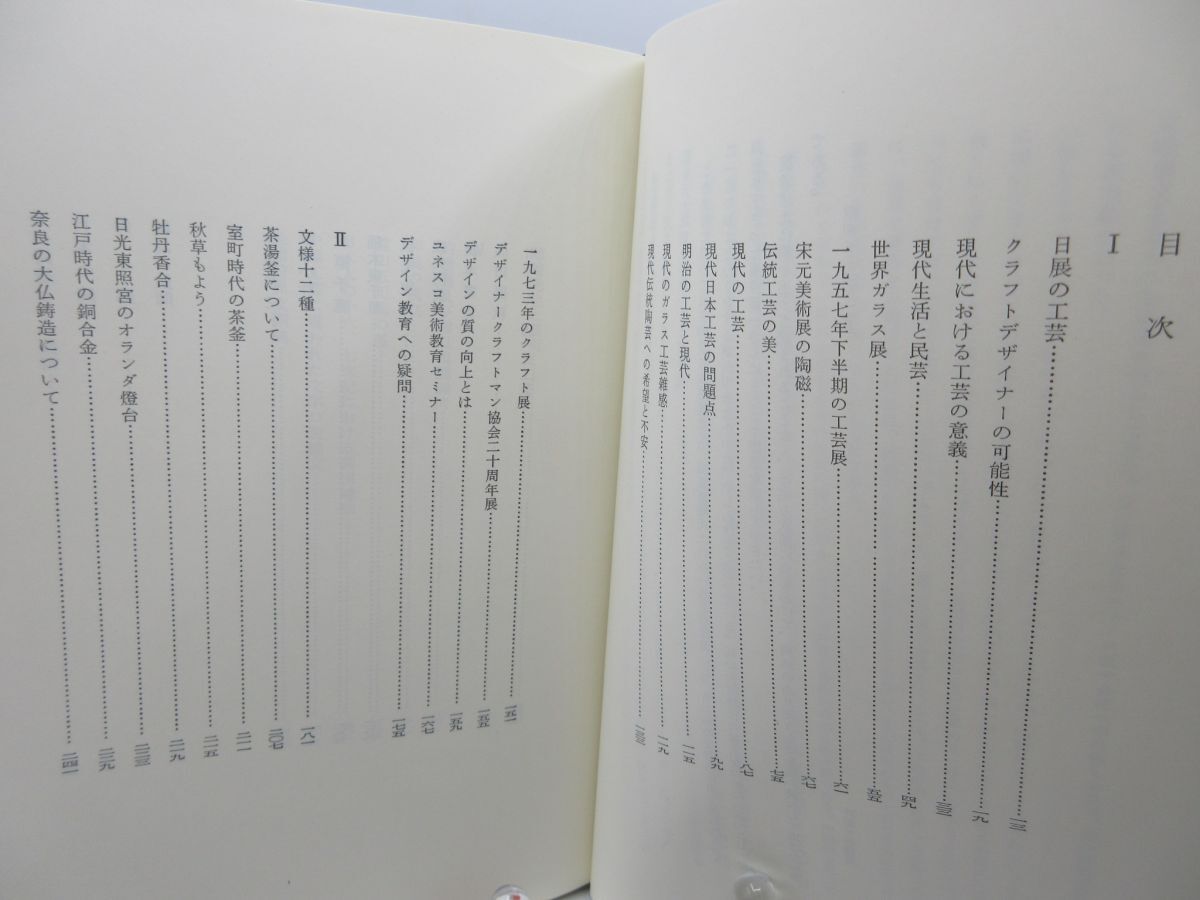 目次
I
日展の工芸……一三
クラフトデザイナーの可能性……一九
現代における工芸の意義……
現代生活と民芸……四九
世界ガラス展……五五
一九五七年下半期の工芸展……六一
宋元美術展の陶磁……六七
伝統工芸の美……七五
現代の工芸……八七
現代日本工芸の問題点……九九
明治の工芸と現代……一一五
現代のガラス工芸雑感……一一九
現代伝統陶芸への希望と不安……
一九七三年のクラフト展……一五一
デザイナークラフトマン協会二十周年展……一五五
デザインの質の向上とは……一五九
ユネスコ美術教育セミナー……一六七
デザイン教育への疑問……一七五
II
文様十二種……一八一
茶湯釜について……二〇七
室町時代の茶釜……二一一
秋草もよう……二一五
牡丹香合……二一九
日光東照宮のオランダ燈台……
江戸時代の銅合金……
奈良の大仏鋳造について……二四一